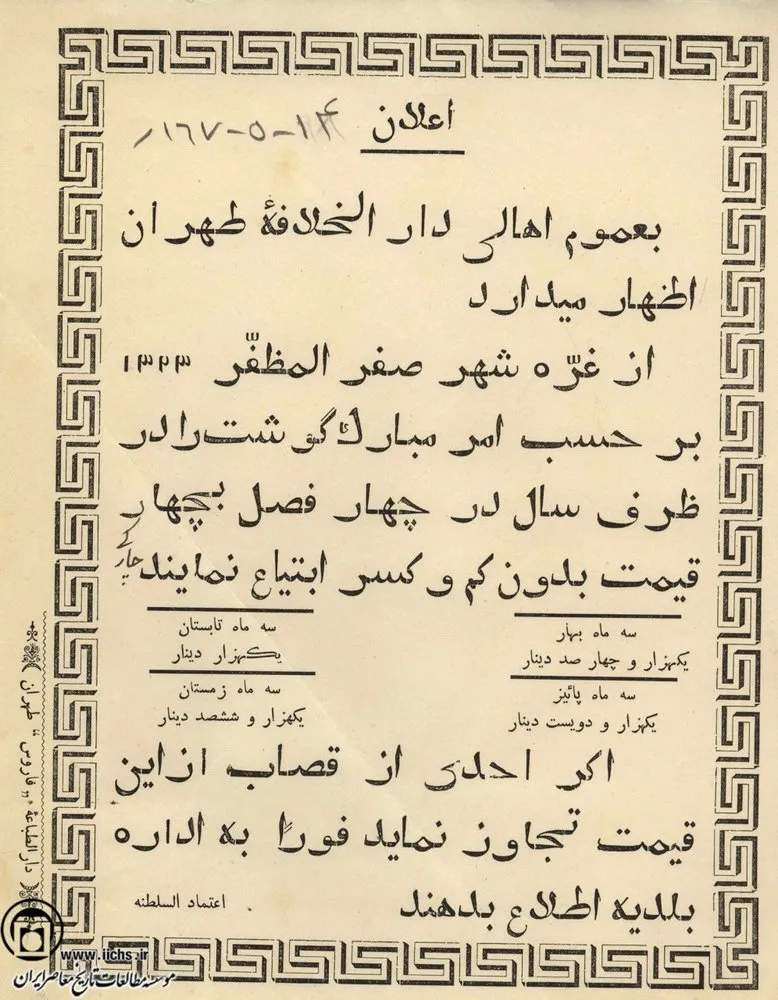 اعلان
۱۴-۵-۱۶۷/
بعموم اهالی دار الخلافهٔ طهران
اظهار میدارد
از غرّه شهر صفر المظفّر ۱۳۲۳
بر حسب امر مبارك گوشت را در
ظرف سال در چهار فصل بچهار
قیمت بدون کم و کسر ابتیاع نمایند
سه ماه بهار
یکهزار و چهار صد دینار
سه ماه تابستان
یکهزار دینار
سه ماه پائیز
یکهزار و دویست دینار
سه ماه زمستان
یکهزار و ششصد دینار
اگر احدی از قصاب ازاین
قیمت تجاوز نماید فوراً به اداره
بلدیه اطلاع بدهند
اعتماد السلطنه
دارالطباعهٔ «فاروس» طهران
www.iichs.ir
موسسه مطالعات تاریخ معاصر ایران